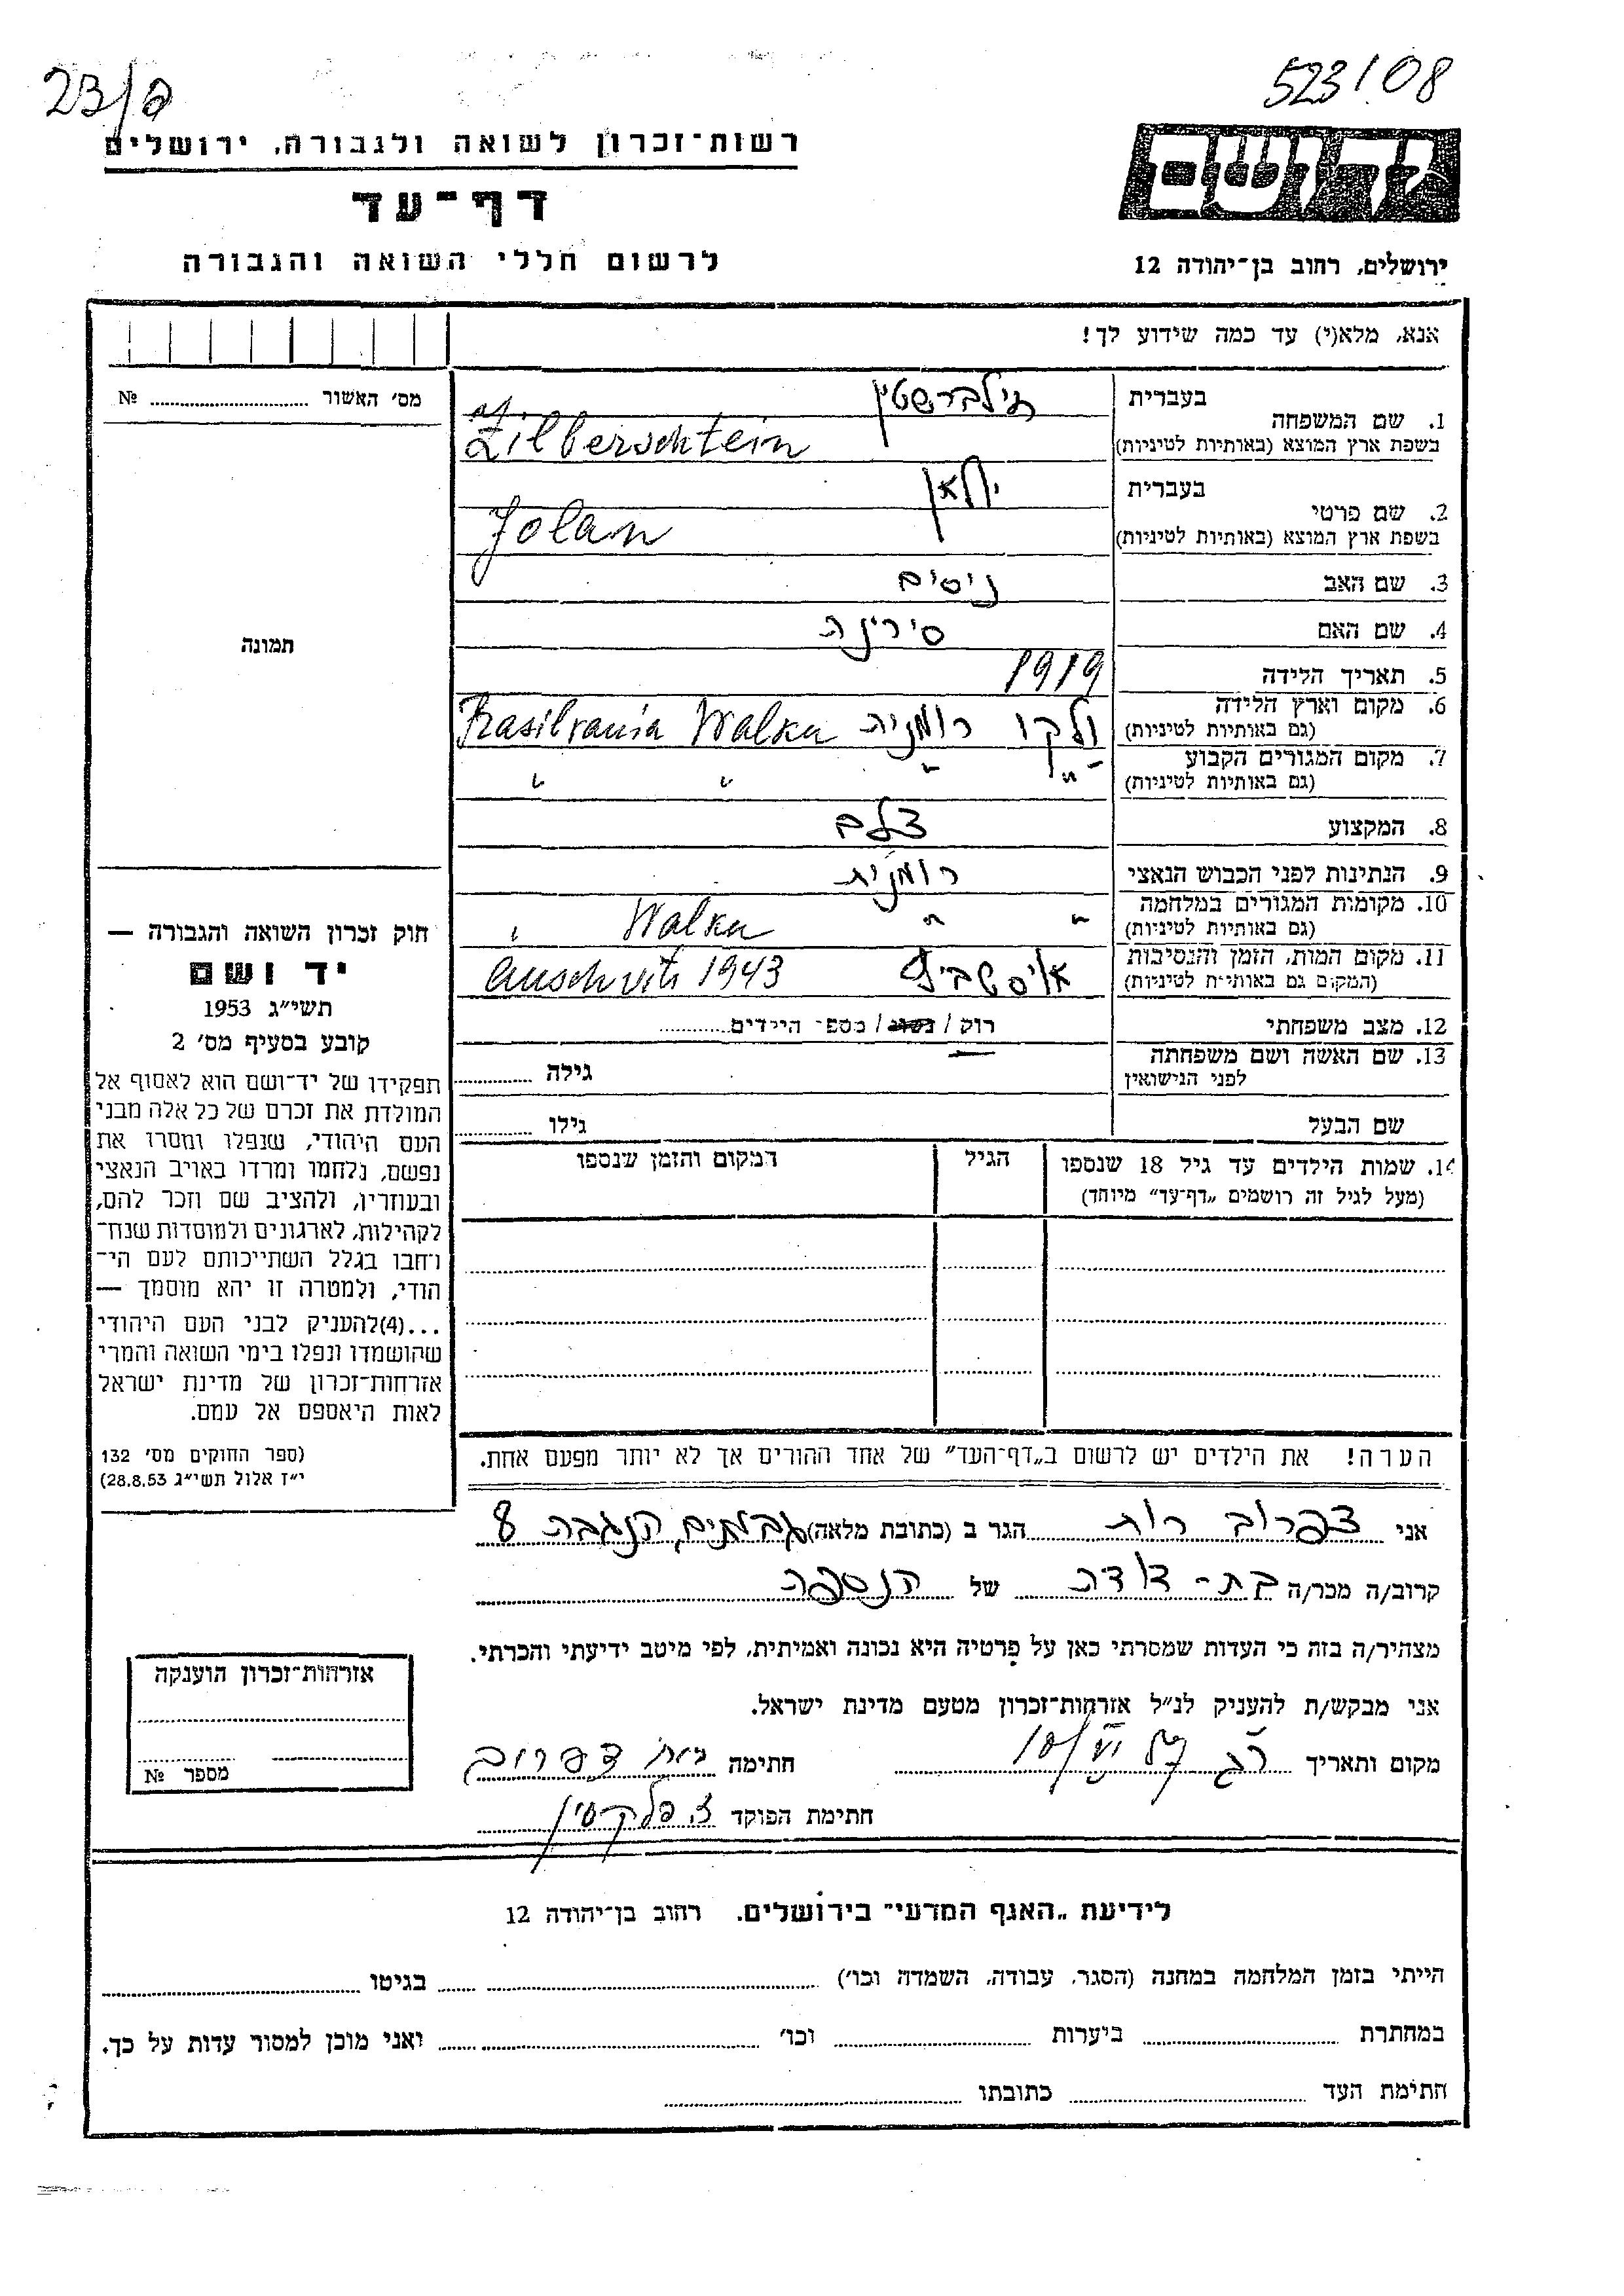 23/פ
523/08
רשות־זכרון לשואה ולגבורה, ירושלים
דף־עד
לרשום חללי השואה והגבורה
יד ושם
ירושלים, רחוב בן־יהודה 12
אנא, מלא(י) עד כמה שידוע לך!
מס' האשור № 
1. שם המשפחה בעברית זילברשטין
בשפת ארץ המוצא (באותיות לטיניות) Zilberschtein
2. שם פרטי בעברית יולאן
בשפת ארץ המוצא (באותיות לטיניות) Jolan
3. שם האב ניסים
4. שם האם סירינה
5. תאריך הלידה 1919
6. מקום וארץ הלידה (גם באותיות לטיניות) ולקו רומניה Walku Trasilvania
7. מקום המגורים הקבוע (גם באותיות לטיניות) " " " "
8. המקצוע
9. הנתינות לפני הכבוש הנאצי רומנית
10. מקומות המגורים במלחמה (גם באותיות לטיניות) " " Walku "
11. מקום המות, הזמן והנסיבות (המקום גם באותיות לטיניות) אושביץ Auschvits 1943
12. מצב משפחתי רוק / נשוי / מספר הילדים
13. שם האשה ושם משפחתה לפני הנישואין — גילה
שם הבעל גילו
14. שמות הילדים עד גיל 18 שנספו הגיל המקום והזמן שנספו
(מעל לגיל זה רושמים „דף־עד" מיוחד)
תמונה
חוק זכרון השואה והגבורה —
יד ושם
תשי"ג 1953
קובע בסעיף מס' 2
תפקידו של יד־ושם הוא לאסוף אל
המולדת את זכרם של כל אלה מבני
העם היהודי, שנפלו ומסרו את
נפשם, נלחמו ומרדו באויב הנאצי
ובעוזריו, ולהציב שם וזכר להם,
לקהילות, לארגונים ולמוסדות שנח־
רבו בגלל השתייכותם לעם הי־
הודי, ולמטרה זו יהא מוסמך —
...(4)להעניק לבני העם היהודי
שהושמדו ונפלו בימי השואה והמרי
אזרחות־זכרון של מדינת ישראל
לאות היאספם אל עמם.
(ספר החוקים מס' 132
י"ז אלול תשי"ג 28.8.53)
הערה! את הילדים יש לרשום ב„דף־העד" של אחד ההורים אך לא יותר מפעם אחת.
אני צפרוב רות הגר ב (כתובת מלאה) גבעתיים, הנגבה 8
קרוב/ה מכר/ה בת־דודה של הנספה
מצהיר/ה בזה כי העדות שמסרתי כאן על פרטיה היא נכונה ואמיתית, לפי מיטב ידיעתי והכרתי.
אני מבקש/ת להעניק לנ"ל אזרחות־זכרון מטעם מדינת ישראל.
מקום ותאריך חתימה רות צפרוב
חתימת הפוקד
אזרחות־זכרון הוענקה
מספר №
לידיעת „האגף המדעי" בירושלים. רחוב בן־יהודה 12
הייתי בזמן המלחמה במחנה (הסגר, עבודה, השמדה וכו') בגיטו
במחתרת ביערות וכו' ואני מוכן למסור עדות על כך.
חתימת העד כתובתו